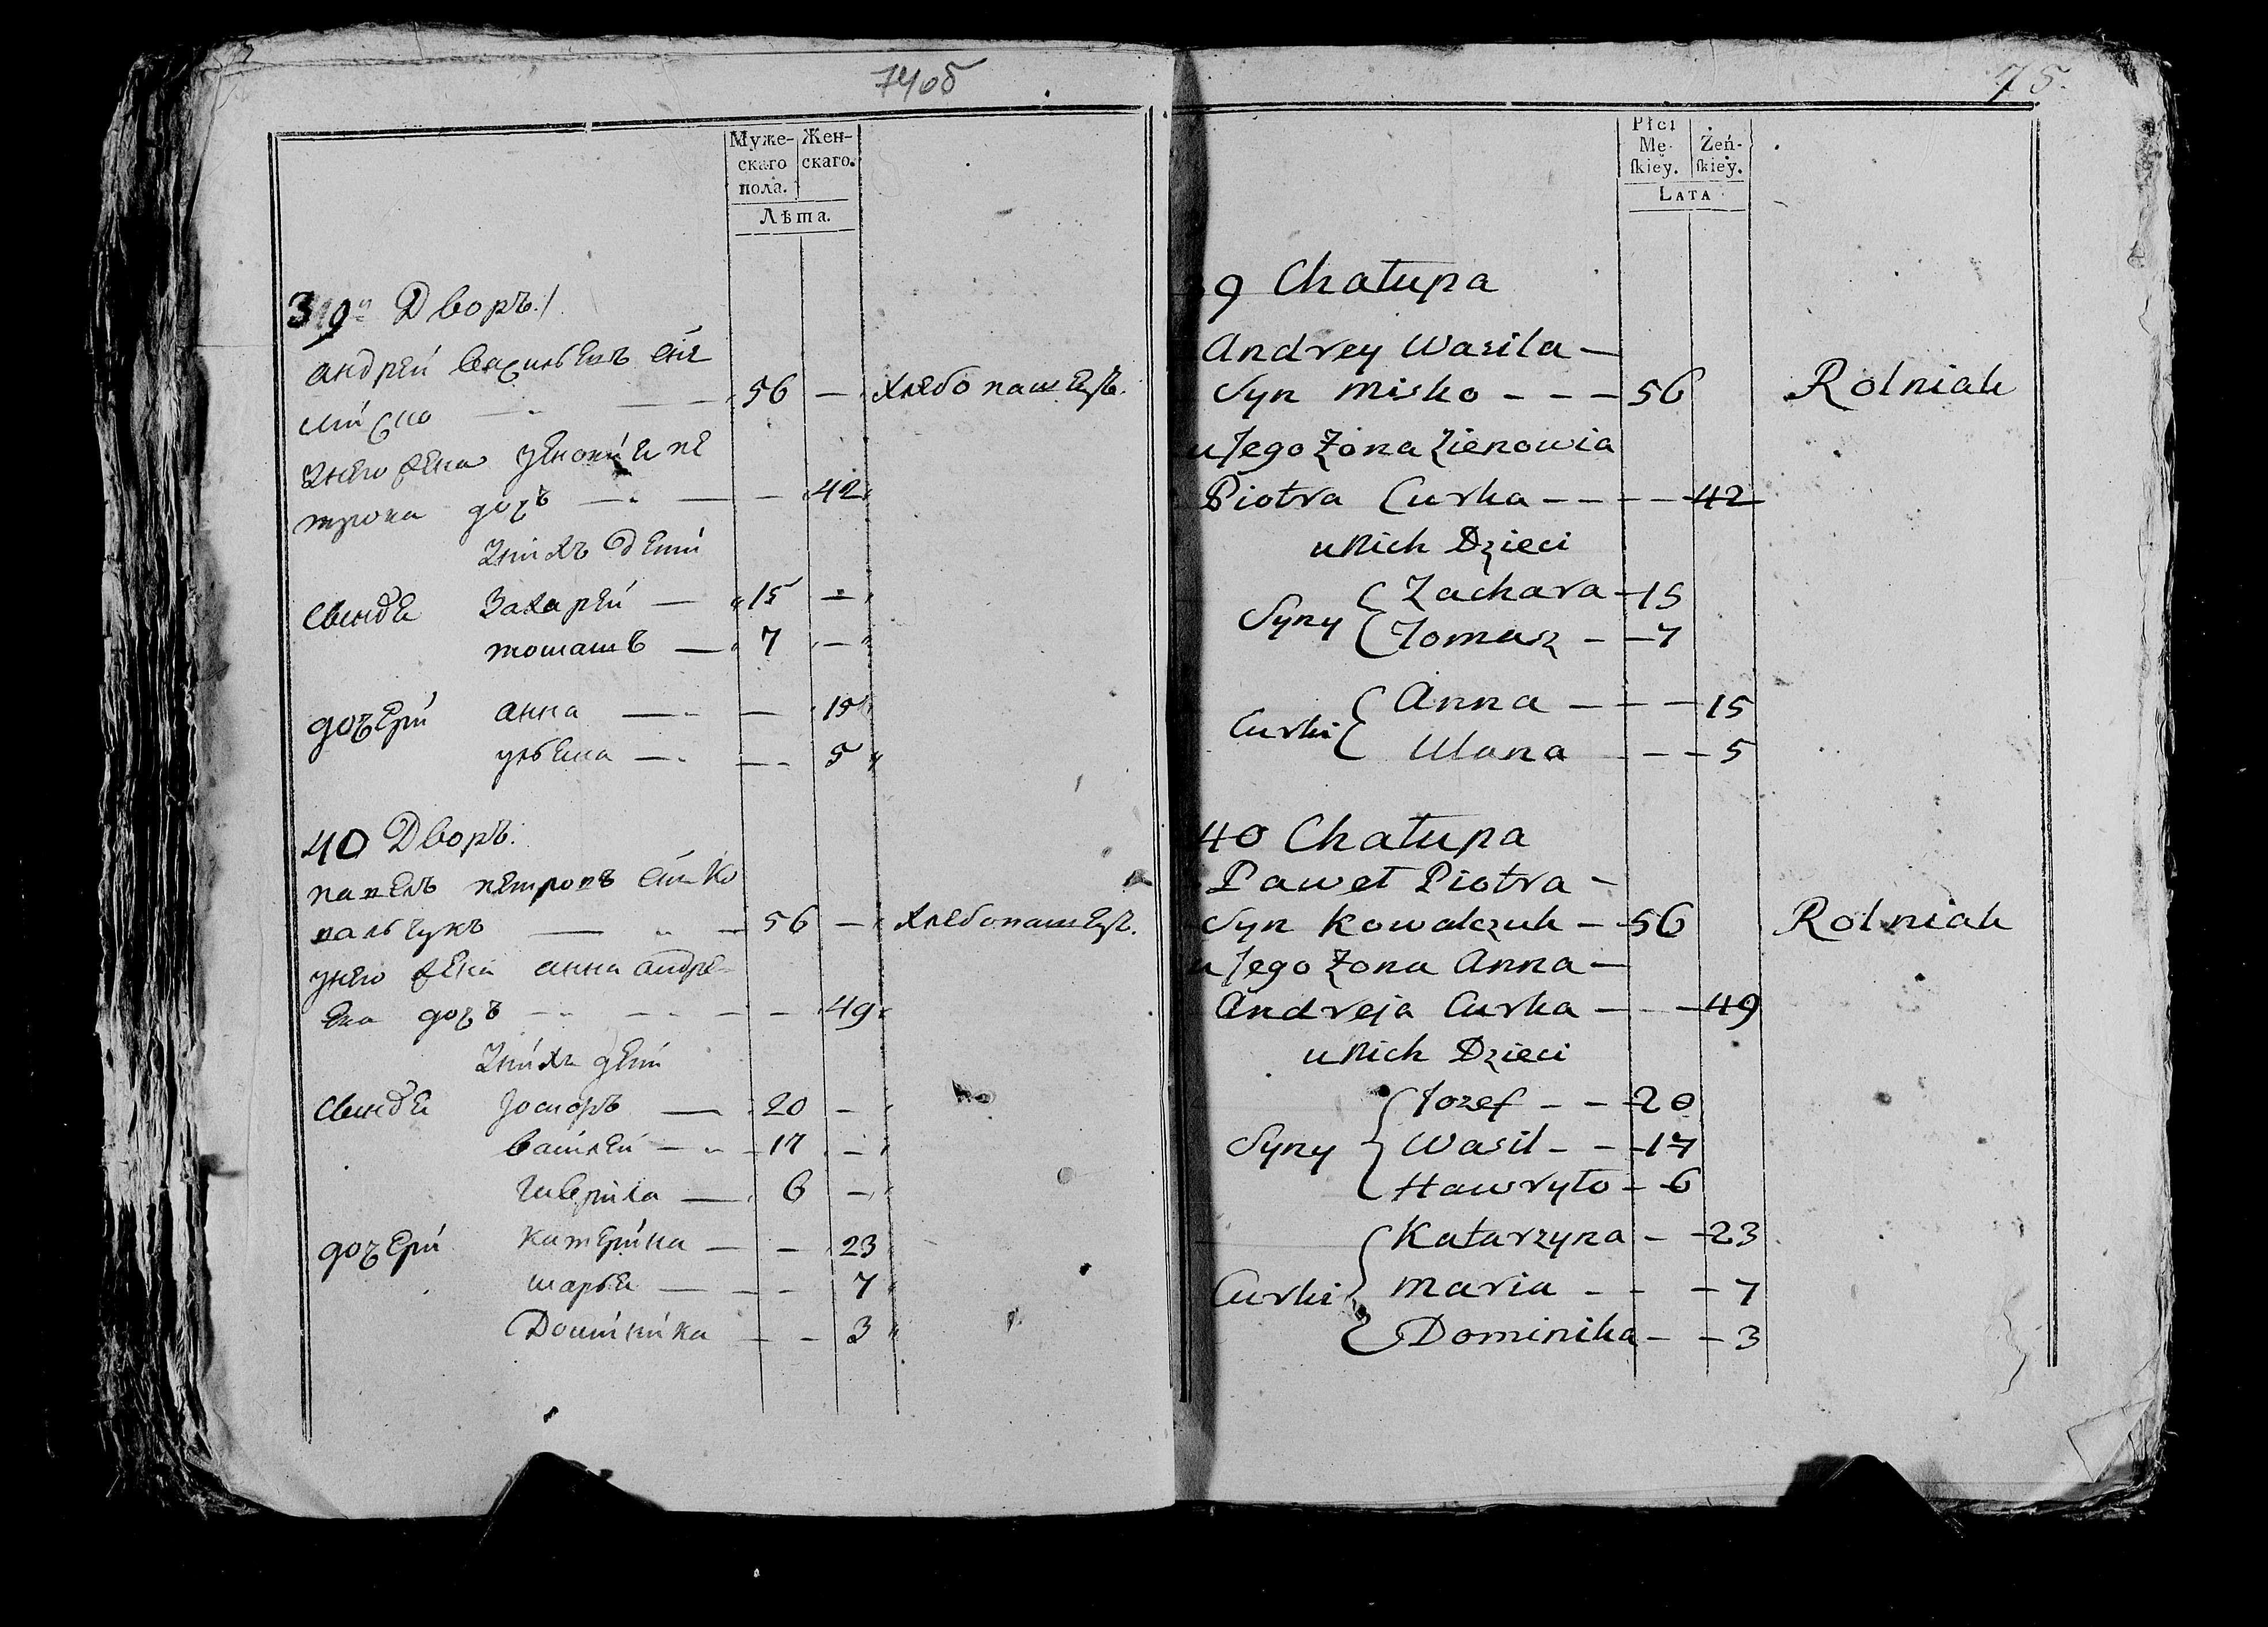 74об
Муже-
скаго
пола.
Жен-
скаго.
Лѣта.
39 Дворъ
андрей васильевъ снъ
миско — 56 — хлебопашецъ.
унего жена зеновия пе
трова дочъ — — 42
унихъ дети
сыновя Захарей — 15 —
томашъ — 7 —
дочери анна — — 15
ульяна — — 5
40 Дворъ.
павелъ петровъ снъ ко
вальчукъ — 56 — хлебопашецъ.
унего жена анна андре
ева дочъ — — 49
унихъ дети
сыновя — 20 —
василей — 17 —
гаврила — 6 —
дочери катерина — — 23
марья — — 7
Доминика — — 3
75.
Płci
Mę-
ſkiey.
Żeń-
ſkiey.
LATA
39 Chałupa
Andrey Wasila —
Syn Misko - - - 56 Rolnik
u Jego Żona Zienowia
Piotra Curka - - - - 42
u Nich Dzieci
Syny { Zachara - 15
Tomasz - - 7
Curki { Anna - - - 15
Ulana - - 5
40 Chałupa
Paweł Piotra -
Syn Kowalczuk - 56 Rolnik
u Jego Żona Anna -
Andreja Curka - - - 49
u Nich Dzieci
Syny { Jozef - - 20
Wasil - - 17
Hawryło - 6
Curki { Katarzyna - - 23
Maria - - - 7
Dominika - - 3